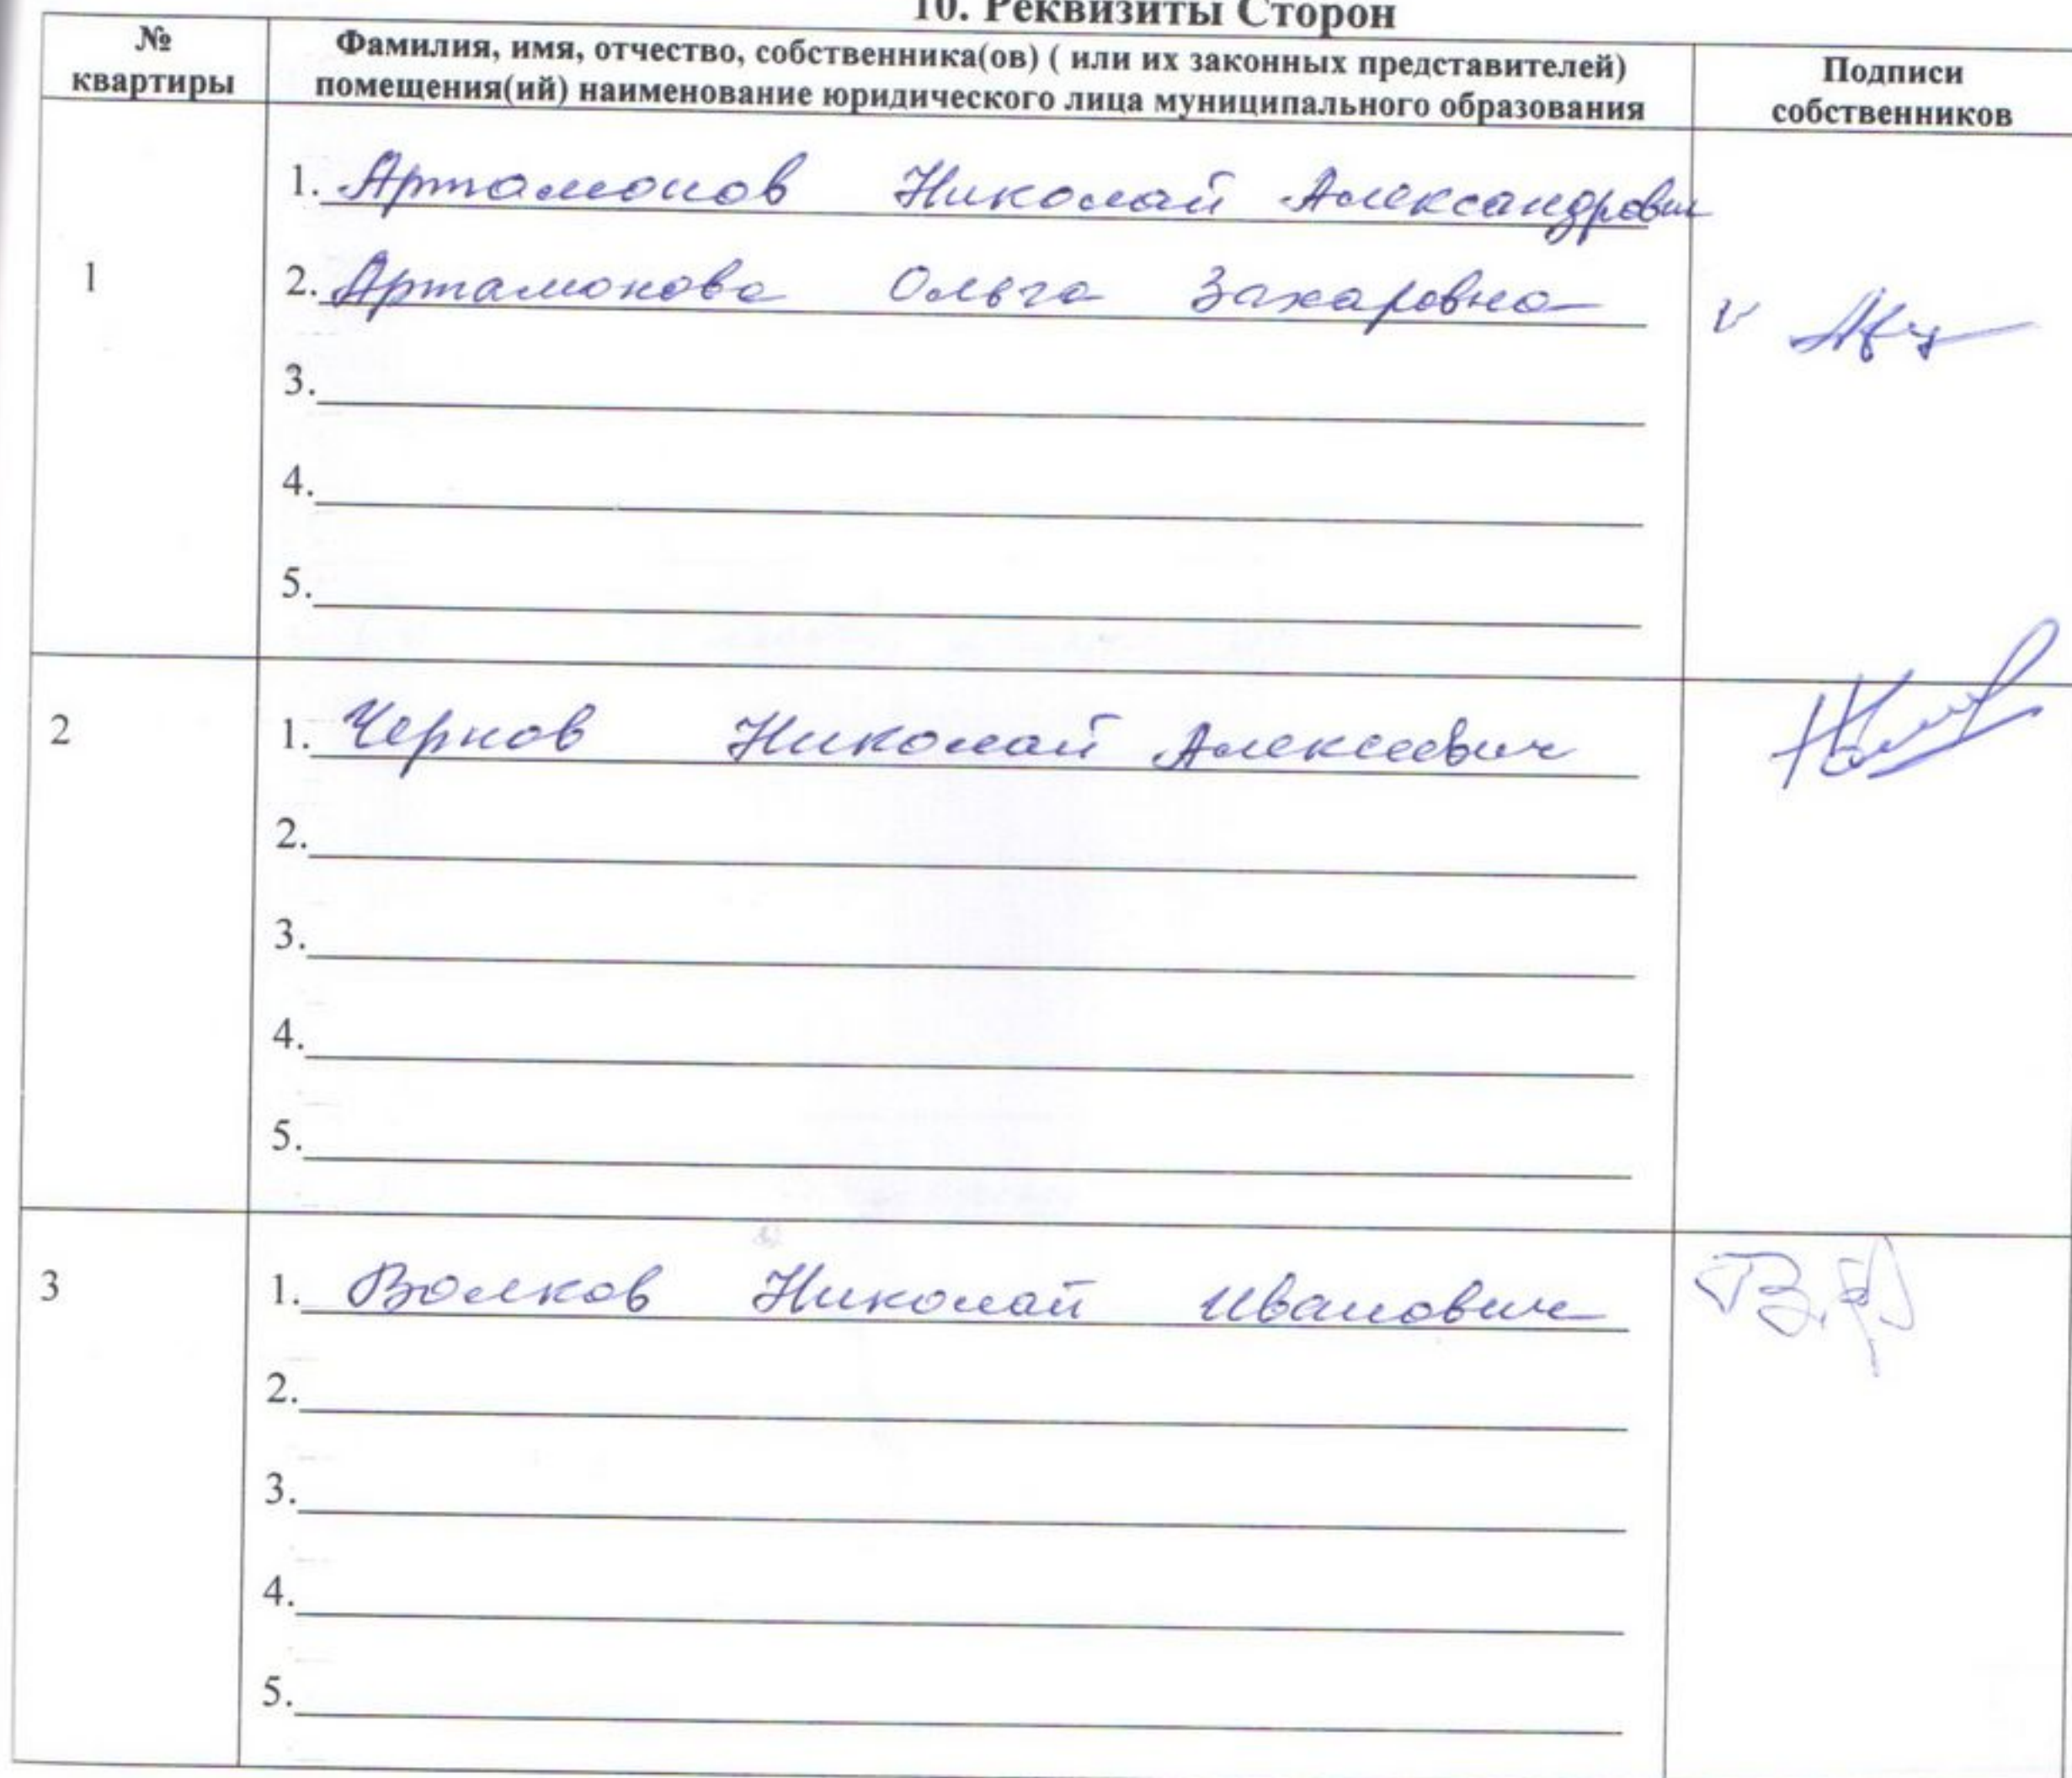 10. Реквизиты Сторон
№ квартиры
Фамилия, имя, отчество, собственника(ов) ( или их законных представителей)
помещения(ий) наименование юридического лица муниципального образования
Подписи собственников
1
1. Артамонов Николай Александрович
2. Артамонова Ольга Захаровна
3.
4.
5.
2
1. Чернов Николай Алексеевич
2.
3.
4.
5.
3
1. Волков Николай Иванович
2.
3.
4.
5.